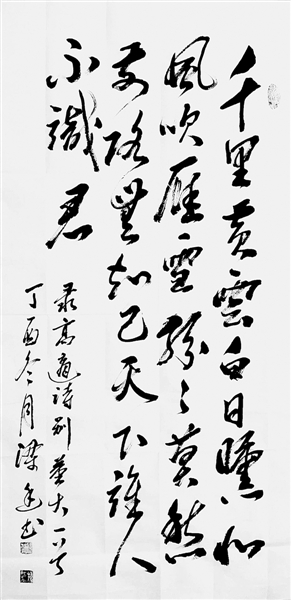 千里黄雲白日曛北
風吹雁雪紛々莫愁
前路無知己天下誰人
不識君
录高適詩别董大一首
丁酉冬月